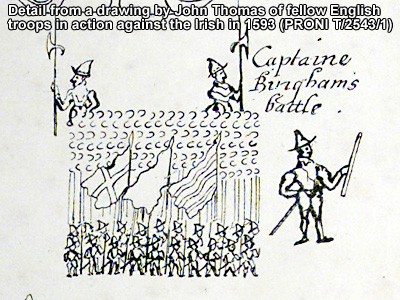 Detail from a drawing by John Thomas of fellow English
troops in action against the Irish in 1593 (PRONI T/2543/1)
Captaine
Binghams
battle